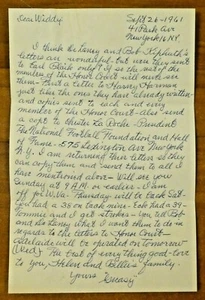 Dear Widdy, Sept 26-1961
41 Park Ave
New York 16 NY
I think De Laney and Bob Kiphuth's
letters are wonderful - but were they sent
to Earl Blaik only? if so the rest of the
members of the Honor Court will never see
them - that a letter to Harry Harman
just like the ones they have already written -
and copies sent to each and every
member of the Honor Court - also send
a copy to Chester La Roche - President
The National Football Foundation and Hall
of Fame - 575 Lexington Ave New York
N.Y. I am returned their letters so they
can copy them and send them to all I
have mentioned above - Will see you
Sunday at 9 A.M. or earlier - I am
off for Va. Thursday will be back Sat -
You had a 38 on back nine - Bob had a 39 -
Tommie and I got strokes - You tell Bob
and De Laney what I want them to do in
regards to the letters to Honor Court -
Adelaide will be operated on tomorrow
(Wed) - The best of everything good - love
to you, Helen and Billie's family -
Yours